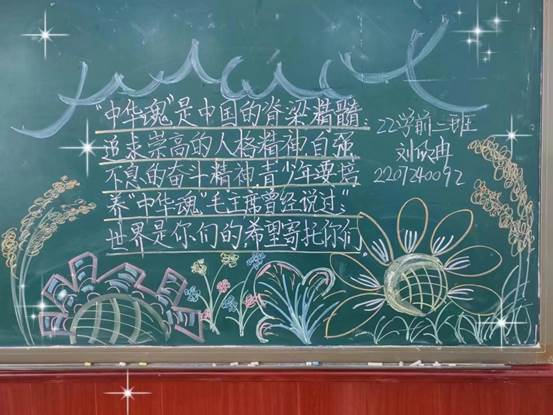 “中华魂”是中国的脊梁精髓;
追求崇高的人格精神自强
不息的奋斗精神,青少年要培
养“中华魂”毛主席曾经说过:“
世界是你们的希望寄托你们
22学前二班
刘欣冉
2207240092